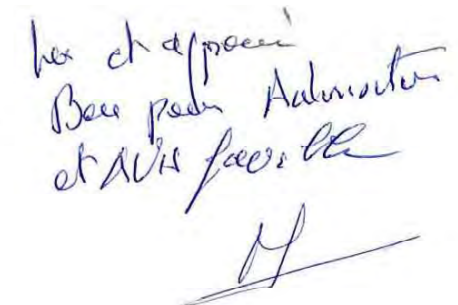 Lu et approuvé
Bon pour Autorisation
et AVIS favorable